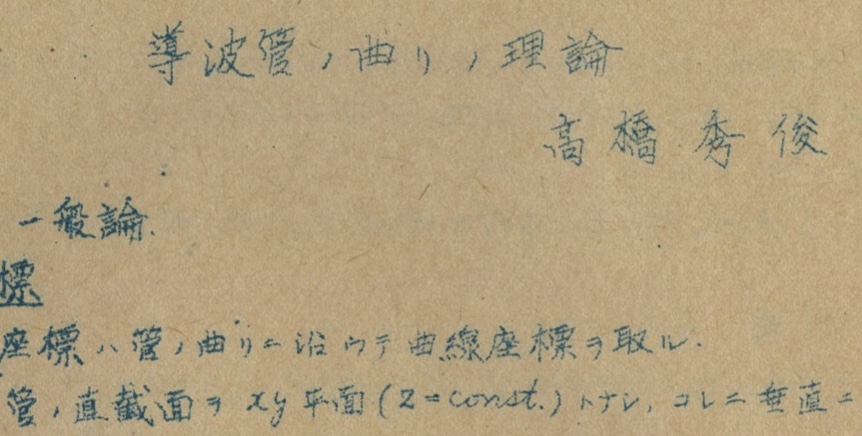 導波管ノ曲リノ理論
高橋秀俊
一般論.
標
座標ハ管ノ曲リニ沿ウテ曲線座標ヲ取ル.
管ノ直截面ヲ xy 平面 (Z=const.) トナシ, コレニ垂直ニ